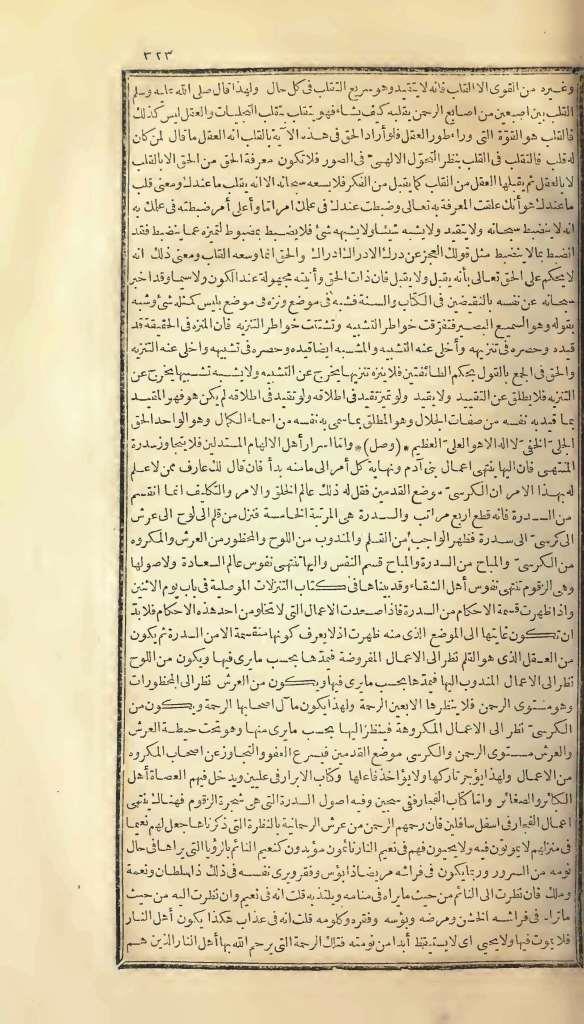 ٣٢٣
وغيره من القوى الا القلب فانه لا يتقيد وهو سريع التقلب فى كل حال ولهذا قال صلى الله عليه وسلم
القلب بين اصبعين من اصابع الرحمن يقلبه كيف يشاء فهو يتقلب بتقلب التجليات والعقل ليس كذلك
فالقلب هو القوة التى وراء طور العقل فلو أراد الحق فى هذه الآية بالقلب انه العقل ما قال لمن كان
له قلب فالتقلب فى القلب بنظر التحول الالهىّ فى الصور فلا تكون معرفة الحق من الحق الا بالقلب
لا بالعقل ثم يقبلها العقل من القلب كما يقبل من الفكر فلا يسعه سبحانه الا انه يقلب ما عندك ومعنى قلب
ما عندك هو أنك علقت المعرفة به تعالى وضبطت عندك فى علمك امرا ما وأعلى أمر ضبطته فى علمك به
انه لا ينضبط سبحانه ولا يتقيد ولا يشبه شيئا ولا يشبهه شئ فلا ينضبط بمضبوط لتميزه عما ينضبط فقد
انضبط بما لا ينضبط مثل قولك العجز عن درك الادراك ادراك والحق انما وسعه القلب ومعنى ذلك انه
لا يحكم على الحق تعالى بأنه يقبل ولا يقبل فان ذات الحق وأنيته مجهولة عند الكون ولا سيما وقد اخبر
سبحانه عن نفسه بالنقيضين فى الكتاب والسنة فشبه فى موضع ونزه فى موضع بليس كمثله شئ وشبه
بقوله وهو السميع البصير فتفرقت خواطر التشبيه وتشتتت خواطر التنزيه فان المنزه فى الحقيقة قد
قيده وحصره فى تنزيهه وأخلى عنه التشبيه والمشبه ايضا قيده وحصره فى تشبيهه واخلى عنه التنزيه
والحق فى الجمع بالقول بحكم الطائفتين فلا ينزه تنزيها يخرج عن التشبيه ولا يشبه تشبيها يخرج عن
التنزيه فلا يطلق عن التقييد ولا يقيد ولو تميز تقيد فى اطلاقه ولو تقيد فى اطلاقه لم يكن هو فهو المقيد
بما قيد به نفسه من صفات الجلال وهو المطلق بما سمى به نفسه من اسماء الكمال وهو الواحد الحق
الجلىّ الخفىّ لا اله الا هو العلىّ العظيم * (وصل) * واما اسرار أهل الالهام المستدلين فلا يتجاوز سدرة
المنتهى فان اليها ينتهى اعمال بنى آدم ونهاية كل أمر الى ما منه بدأ فان قال لك عارف ممن لا علم
له بهذا الامر ان الكرسىّ موضع القدمين فقل له ذلك عالم الخلق والامر والتكليف انما انقسم
من السدرة فانه قطع اربع مراتب والسدرة هى المرتبة الخامسة فنزل من قلم الى لوح الى عرش
الى كرسىّ الى سدرة فظهر الواجب من القلم والمندوب من اللوح والمحظور من العرش والمكروه
من الكرسىّ والمباح من السدرة والمباح قسم النفس واليها تنتهى نفوس عالم السعادة ولاصولها
وهى الزقوم تنتهى نفوس أهل الشقاء وقد بيناها فى كتاب التنزلات الموصلية فى باب يوم الاثنين
واذا ظهرت قسمة الاحكام من السدرة فاذا صعدت الاعمال التى لا تخلو من احد هذه الاحكام فلا بدّ
ان تكون غايتها الى الموضع الذى منه ظهرت اذ لا يعرف كونها منقسمة الا من السدرة ثم يكون
من العقل الذى هو القلم نظر الى الاعمال المفروضة فيمدّها بحسب ما يرى فيها ويكون من اللوح
نظر الى الاعمال المندوب اليها فيمدّها بحسب ما يرى فيها ويكون من العرش نظر الى المحظورات
وهو مستوى الرحمن فلا ينظرها الا بعين الرحمة ولهذا يكون مآل اصحابها الرحمة ويكون من
الكرسىّ نظر الى الاعمال المكروهة فينظر اليها بحسب ما يرى منها وهو تحت حيطة العرش
والعرش مستوى الرحمن والكرسى موضع القدمين فيسرع العفو والتجاوز عن اصحاب المكروه
من الاعمال ولهذا يؤجر تاركها ولا يؤاخذ فاعلها وكتاب الابرار فى عليين ويدخل فيهم العصاة أهل
الكبائر والصغائر واما كتاب الفجار ففى سجين وفيه اصول السدرة التى هى شجرة الزقوم فهناك ينتهى
اعمال الفجار فى اسفل سافلين فان رحمهم الرحمن من عرش الرحمانية بالنظرة التى ذكرناها جعل لهم نعيما
فى منزلهم فلا يموتون فيه ولا يحيون فهم فى نعيم النار نائمون مؤبدون كنعيم النائم بالرؤيا التى يراها فى حال
نومه من السرور وربما يكون فى فراشه مريضا ذا بؤس وفقر ويرى نفسه فى ذلك ذا سلطان ونعمة
وملك فان نظرت الى النائم من حيث ما يراه فى منامه ويلتذ به قلت انه فى نعيم وان نظرت اليه من حيث
ما تراه فى فراشه الخشن ومرضه وبؤسه وفقره وكلومه قلت انه فى عذاب هكذا يكون أهل النار
فلا يموت فيها ولا يحيى اى لا يستيقظ أبدا من نومته فتلك الرحمة التى يرحم الله بها أهل النار الذين هم